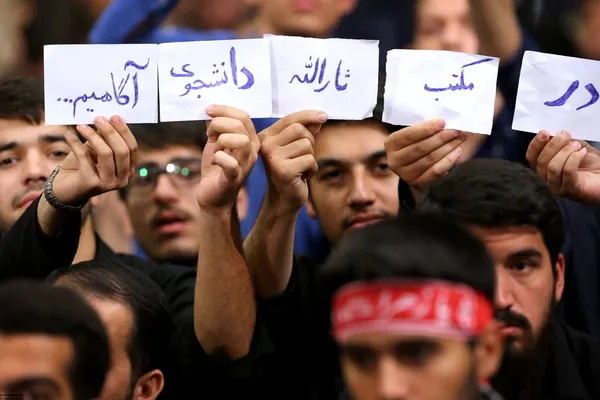 در مکتب ثارالله دانشجوی آگاهیم...